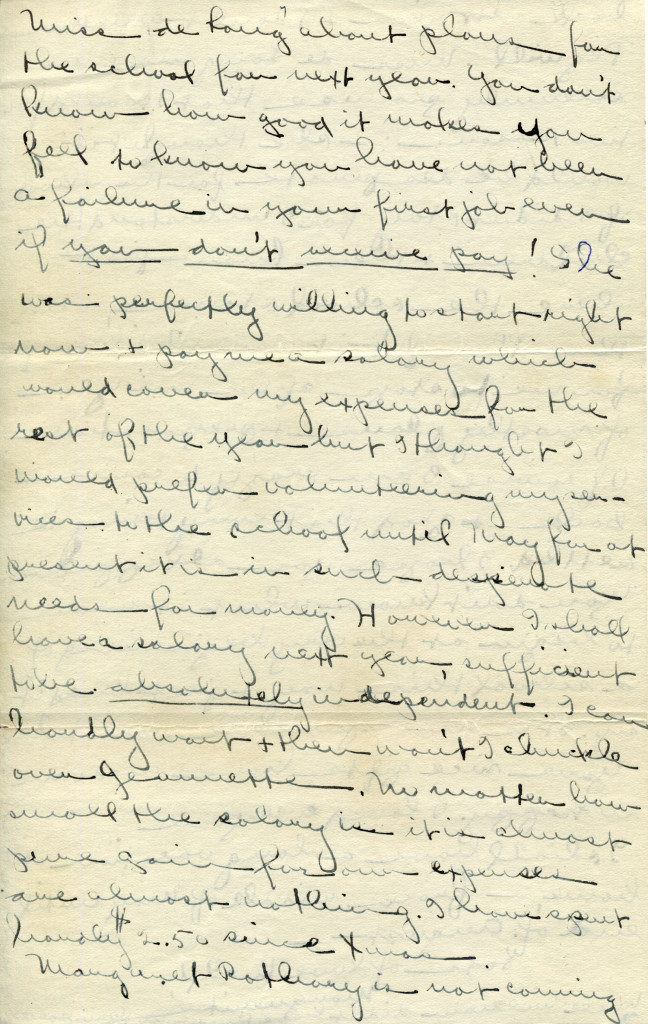 Miss de Long about plans for
the school for next year. You don't
know how good it makes you
feel to know you have not been
a failure in your first job even
if you don't receive pay! She
was perfectly willing to start right
now + pay me a salary which
would cover my expenses for the
rest of the year but I thought I
would prefer volunteering my ser-
vices to the school until May for at
present it is in such desperate
needs for money. However I shall
have a salary next year, sufficient
to be absolutely independent. I can
hardly wait + then won't I chuckle
over Jeannette. No matter how
small the salary is it is almost
pure gain for our expenses
are almost nothing. I have spent
hardly $2.50 since Xmas
Margaret Rothary is not coming